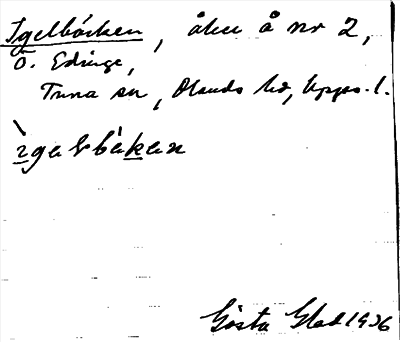 Igelbäcken, åker å nr 2,
Ö. Edinge,
Tuna sn, Olands hd, Upps. l.
ìgəlbàkən
Gösta Glad 1936